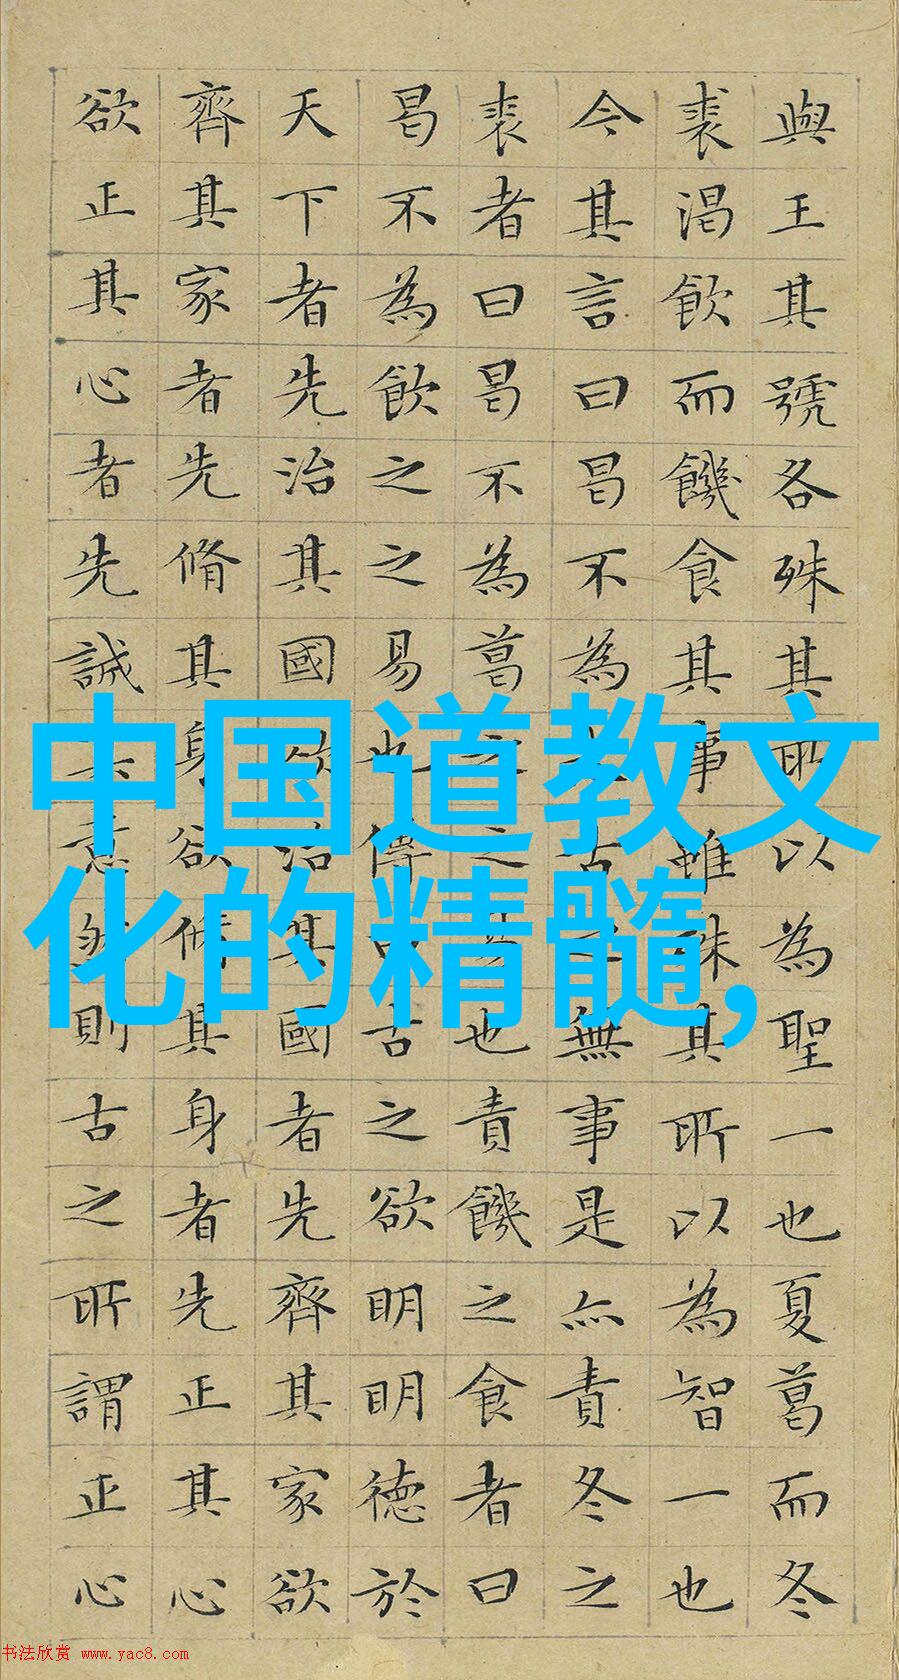 與王其號各殊其所以為聖一也夏葛而冬
裘渴飲而饑食其事雖殊其所以為智一也
今其言曰曷不為古之無事是亦責冬之
裘者曰曷不為葛之之也責饑之食者曰
曷不為飲之之易也傳曰古之欲明明德於
天下者先治其國欲治其國者先齊其家欲
齊其家者先脩其身欲脩其身者先正其心
欲正其心者先誠其意然則古之所謂正心
中国道教文
化的精髓,
书法欣赏 www.yac8.com